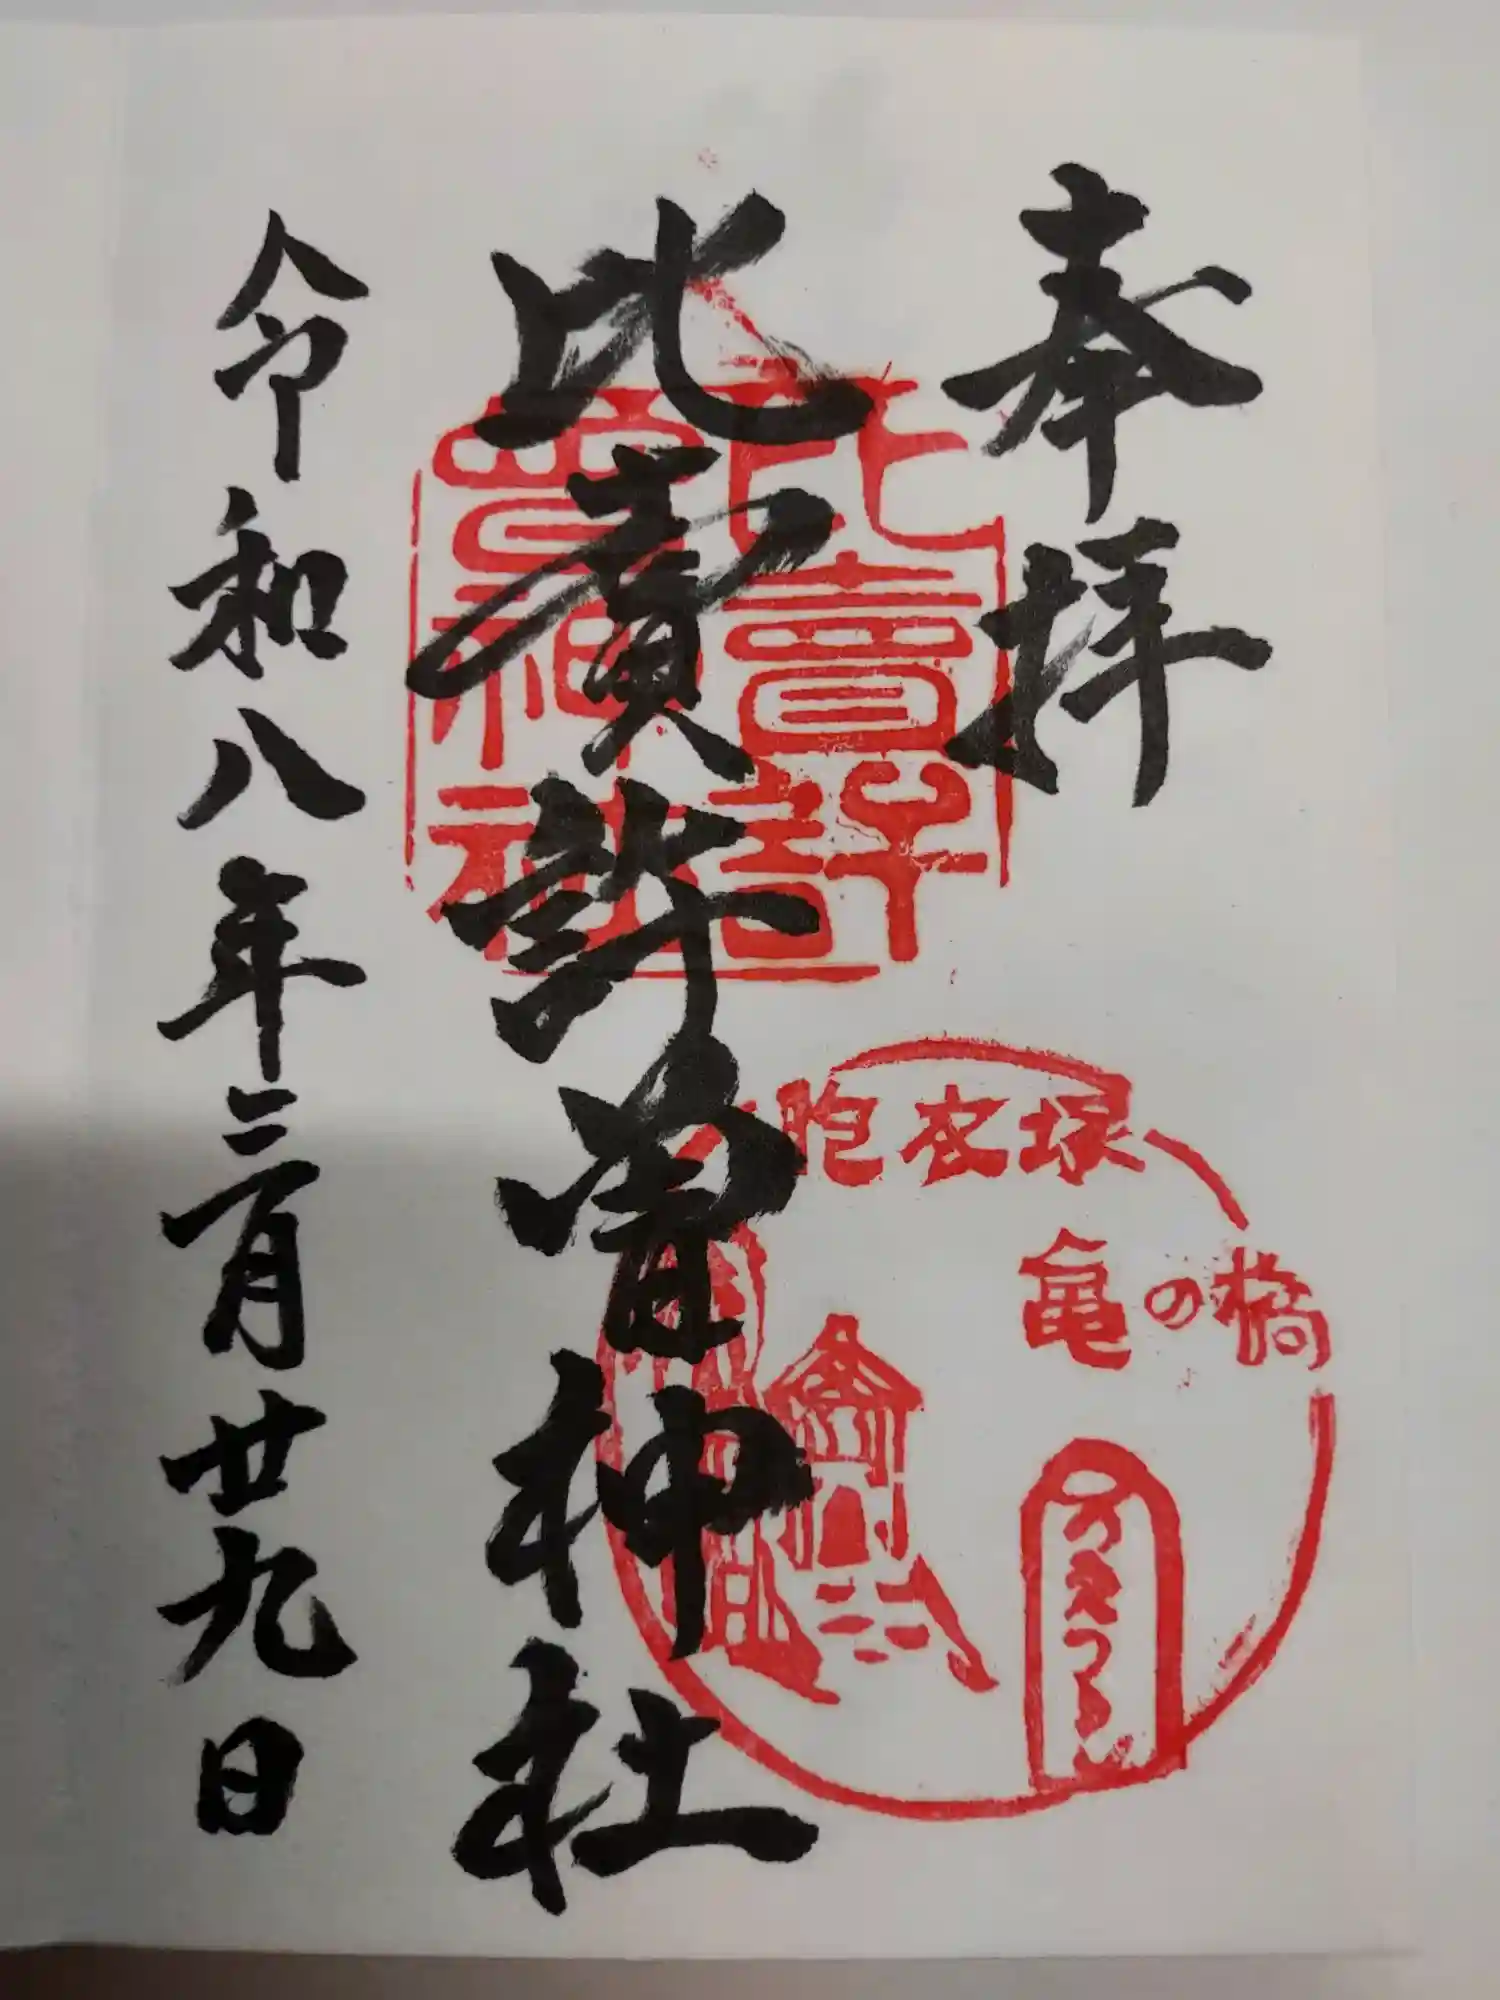 奉拝
比賣許曽神社
令和八年二月廿九日
比賣許
曽神社
胞衣塚
亀の橋